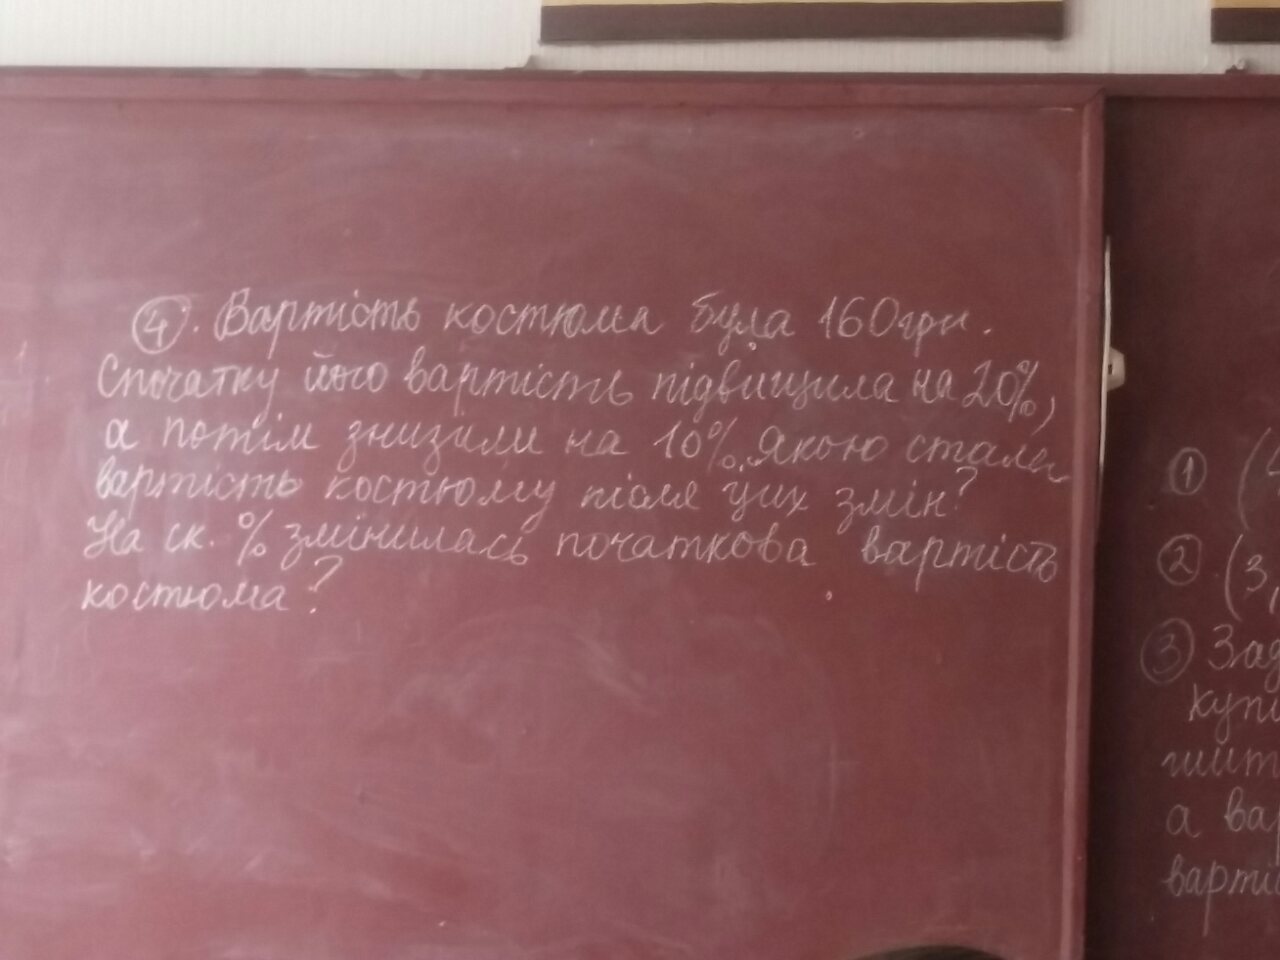 ④. Вартість костюма була 160грн.
Спочатку його вартість підвищила на 20%,
а потім знизили на 10%. Якою стала
вартість костюму після цих змін?
На ск. % змінилась початкова вартість
костюма?
① (
② (3,
③ Зад
купи
а вар
варті